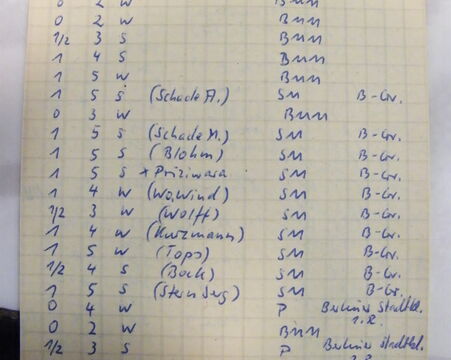 0 2 W BMM
0 2 W BMM
1/2 3 S BMM
1 4 S BMM
1 5 W BMM
1 5 S (Schade A.) SM B-Gr.
0 3 W BMM
1 5 S (Schade M.) SM B-Gr.
1 5 S (Blohm) SM B-Gr.
1 5 S x Prziwara SM B-Gr.
1 4 W (Wo, Wind) SM B-Gr.
1/2 3 W (Wolff) SM B-Gr.
1 4 W (Kurzmann) SM B-Gr.
1 5 W (Tops) SM B-Gr.
1/2 4 S (Bock) SM B-Gr.
1 5 S (Steinberg) SM B-Gr.
0 4 W P Berliner Stadtkl.
1. R.
0 2 W BMM
1/2 3 S P Berliner Stadtkl.